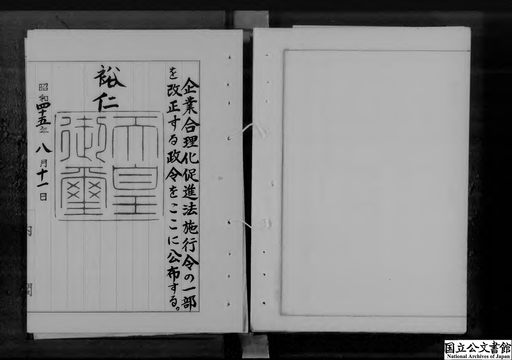 企業合理化促進法施行令の一部
を改正する政令をここに公布する。
裕仁
天皇
御璽
昭和四十五年八月十一日
内閣
国立公文書館
National Archives of Japan